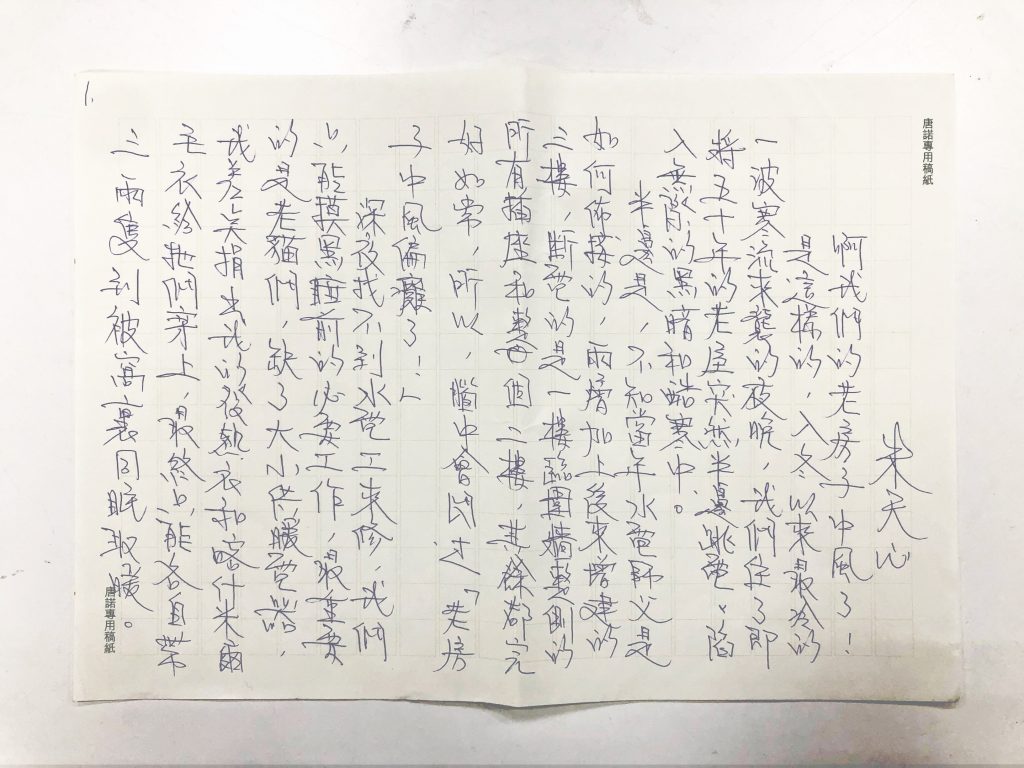 唐諾專用稿紙
朱天心
啊我們的老房子中風了！
是這樣的，入冬以來最冷的
一波寒流來襲的夜晚，我們住了即
將五十年的老屋突然半邊跳電、陷
入無澈的黑暗和酷寒中。
半邊是，不知當年水電師父是
如何佈線的，兩房加上後來增建的
三樓，斷電的是一樓臨圍牆整側的
所有插座和整個二樓，其餘都完
好如常，所以，腦中會閃過「老房
子中風偏癱了！」
深夜找不到水電工來修，我們
只能摸黑睡前的必要工作，最重要
的是老貓們，缺了大小供暖電器，
我差點捐出我的發熱衣和喀什米爾
毛衣給牠們穿上，最終只能各自帶
三兩隻到被窩裏同眠取暖。
1.
唐諾專用稿紙